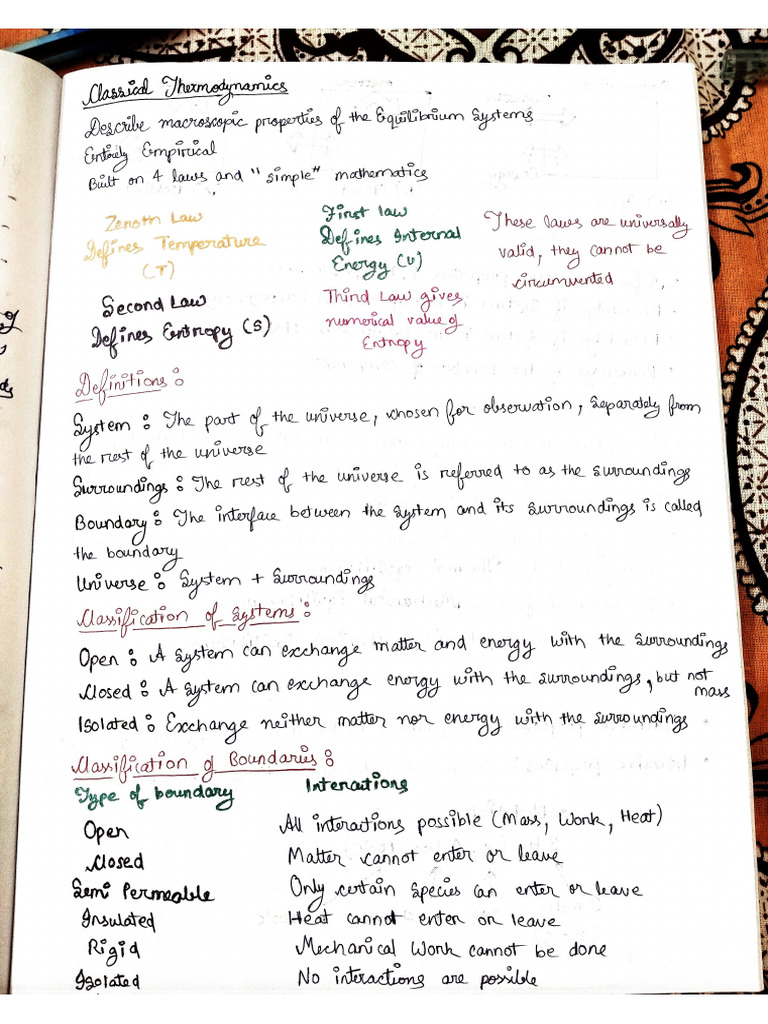 Classical Thermodynamics
Describe macroscopic properties of the Equilibrium Systems
Entirely Empirical
Built on 4 laws and "simple" mathematics
Zeroth Law
Defines Temperature
(T)
First law
Defines Internal
Energy (U)
These laws are universally
valid, they cannot be
circumvented
Second Law
Defines Entropy (S)
Third Law gives
numerical value of
Entropy
Definitions :
System : The part of the universe, chosen for observation, separately from
the rest of the universe
Surroundings : The rest of the universe is referred to as the surroundings
Boundary : The interface between the system and its surroundings is called
the boundary
Universe : System + Surroundings
Classification of Systems :
Open : A system can exchange matter and energy with the surroundings
Closed : A system can exchange energy with the surroundings, but not
mass
Isolated : Exchange neither matter nor energy with the surroundings
Classification of Boundaries :
Type of boundary Interactions
Open All interactions possible (Mass, Work, Heat)
Closed Matter cannot enter or leave
Semi Permeable Only certain species can enter or leave
Insulated Heat cannot enter or leave
Rigid Mechanical Work cannot be done
Isolated No interactions are possible